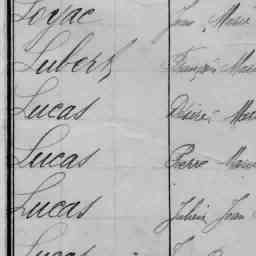 Loyac Jean Marie
Lubert François Marie
Lucas Désiré Mar
Lucas Pierre Marie
Lucas Julien Jean
Lucas